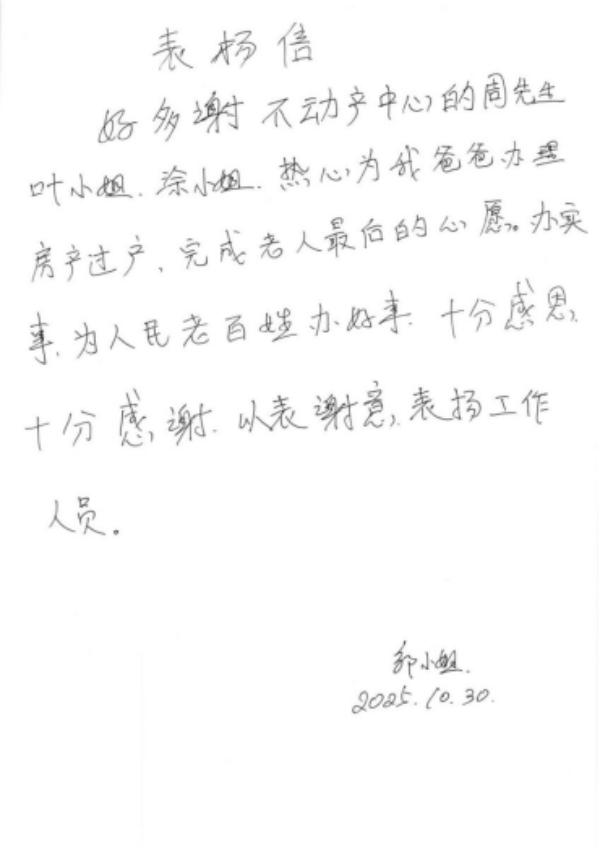 表扬信
好多谢不动产中心的周先生
叶小姐.涂小姐.热心为我爸爸办理
房产过产,完成老人最后的心愿。办实
事,为人民老百姓办好事.十分感恩,
十分感谢.以表谢意,表扬工作
人员。
邹小姐.
2025.10.30.